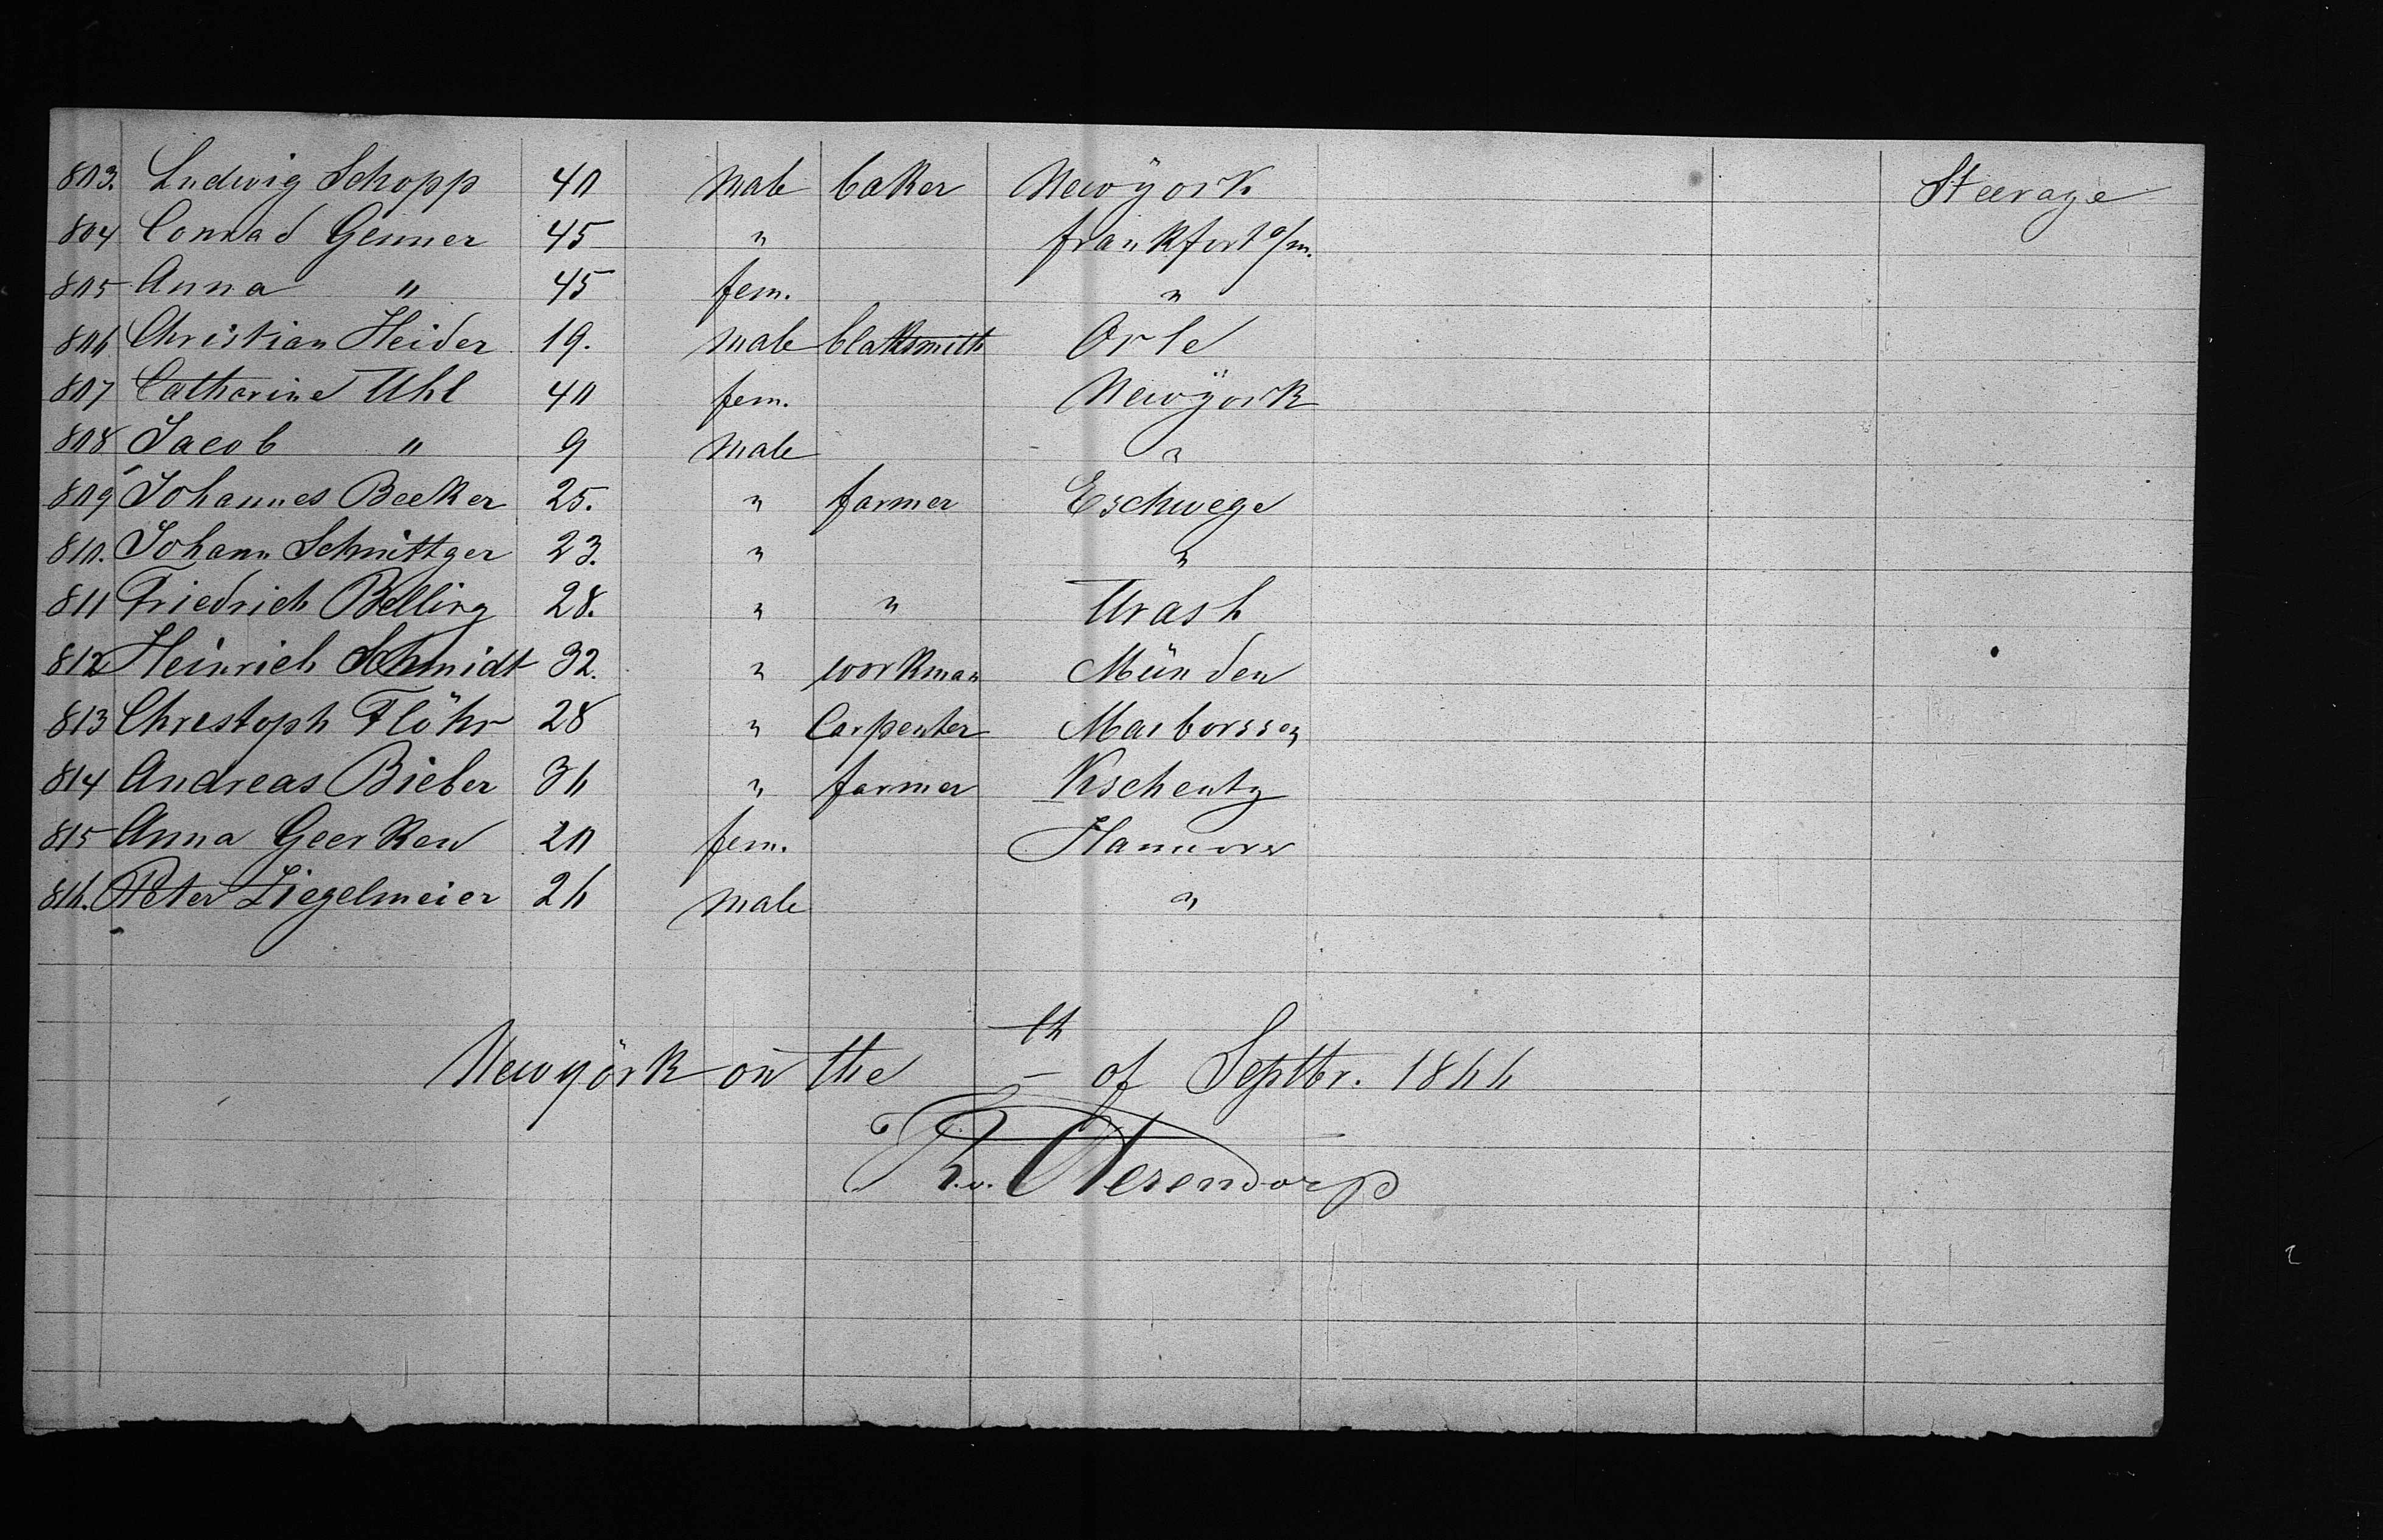 803. Ludwig Schopp 40 male baker Newÿork Steerage
804 Conrad Genner 45 " Frankfort a/m.
805 Anna " 45 fem. "
806 Christian Heider 19. male blaksmith Orle
807 Catharine Uhl 40 fem. Newÿork
808 Jacob " 9 male "
809 Johannes Becker 25. " farmer Eschwege
810. Johann Schnittger 23. " "
811 Friedrich Belling 28. " " Urash
812 Heinrich Schmidt 32. " workman Münden
813 Christoph Flöhr 28 " Carpenter Marborssen
814 Andreas Bieber 36 " farmer Kschentz
815 Anna Geerken 20 fem. Hannover
816. Peter Ziegelmeier 26 male "
Newÿork on the th of Septbr. 1866
v. Oterendorp